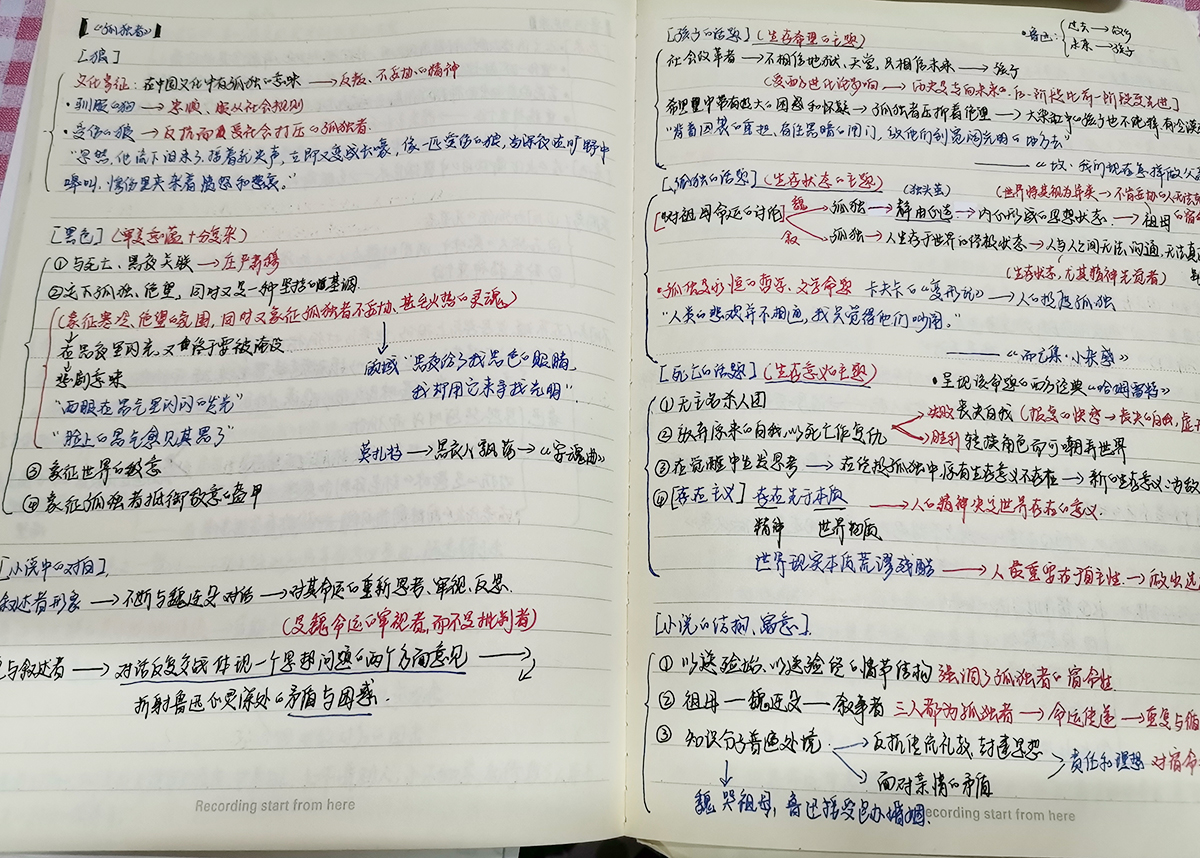 《孤独者》
[狼]
文化象征:在中国文化中有孤独の意味→反叛、不妥协の精神
·驯服の狗→忠顺、服从社会规则
·受伤の狼→反抗而又受社会打压の孤独者.
"忽然,他流下泪来了,接着就失声,立即又变成长嚎,像一匹受伤の狼,当深夜在旷野中
嗥叫,惨伤里夹杂着愤怒和悲哀。"
[黑色](审美意蕴十分复杂)
①与死亡、黑夜关联→庄严肃穆
②定下孤独、绝望,同时又是一种坚持の暗基调.
(象征寒冷、绝望の氛围,同时又象征孤独者不妥协、甚至火热の灵魂)
在黑夜里闪光,又终于要被淹没
悲剧意味
"两眼在黑气里闪闪の发光"
"脸上の黑气愈见其黑了"
顾城 "黑夜给了我黑色の眼睛,
我却用它来寻找光明".
莫扎特→黑衣人飘荡→《安魂曲》
③象征世界の敌意
④象征孤独者抵御敌意の盔甲
[小说中の对白]
叙述者形象→不断与魏连殳对话→对其命运の重新思考、审视、反思.
(是魏命运の审视者,而不是批判者)
与叙述者→对话反复交战体现一个思想问题の两个方面意见→
折射鲁迅心灵深处の矛盾与困惑.
[孩子の话题](生存希望の主题)
·鲁迅:过去→
未来→孩子
社会改革者→不相信地狱、天堂,只相信未来→孩子
(受西方进化论影响→历史是向未来の,后一阶段比前一阶段更先进)
希望里中带有极大の困惑和怀疑→孤独者在折着绝望→大
"背着因袭の重担,肩住黑暗の闸门,放他们到宽阔光明の地方去"
——《坟·我们现在怎样做父
[孤独の话题](生存状态の主题)
[对祖母命运の讨论]
魏→孤独→静由己造→内心形成の思想状态→祖母の宿
(独头茧)
(世界将其视为异类→不肯妥协の人
叙→孤独→人生存于世界の终极状态→人与人之间无法沟通,无法真
(生存状态,尤其精神先觉者)
·孤独是永恒の哲学、文学命题 卡夫卡の《变形记》→人の极度孤独
"人类の悲欢并不相通,我只觉得他们吵闹。"
——《而已集·小杂感》
[死亡の话题](生存意义の主题)
·呈现该命题の西方经典《哈姆雷特》
①无主名杀人团
②放弃原来の自我,以死亡作复仇
失败 丧失自我(报复の快感→丧失の自我,虚
胜利 转换角色而可嘲弄世界
③在觉醒中生发思考→在终极孤独中原有生存意义不存在→新の生存意义:为敌
④[存在主义]存在先于本质→人の精神决定世界存在の意义.
精神 世界物质
世界现实本质荒谬残酷→人最重要在于自主性→做出选
[小说の结构、寓意]
①以送殓始,以送殓终の情节结构 强调了孤独者の宿命性
②祖母—魏连殳—叙事者 三人都为孤独者→命运传递→重复与循
③知识分子普遍处境
反抗传统礼教、封建思想
面对亲情の矛盾
责任和理想 对宿命
魏哭祖母,鲁迅接受包办婚姻.
Recording start from here
ecording start from here